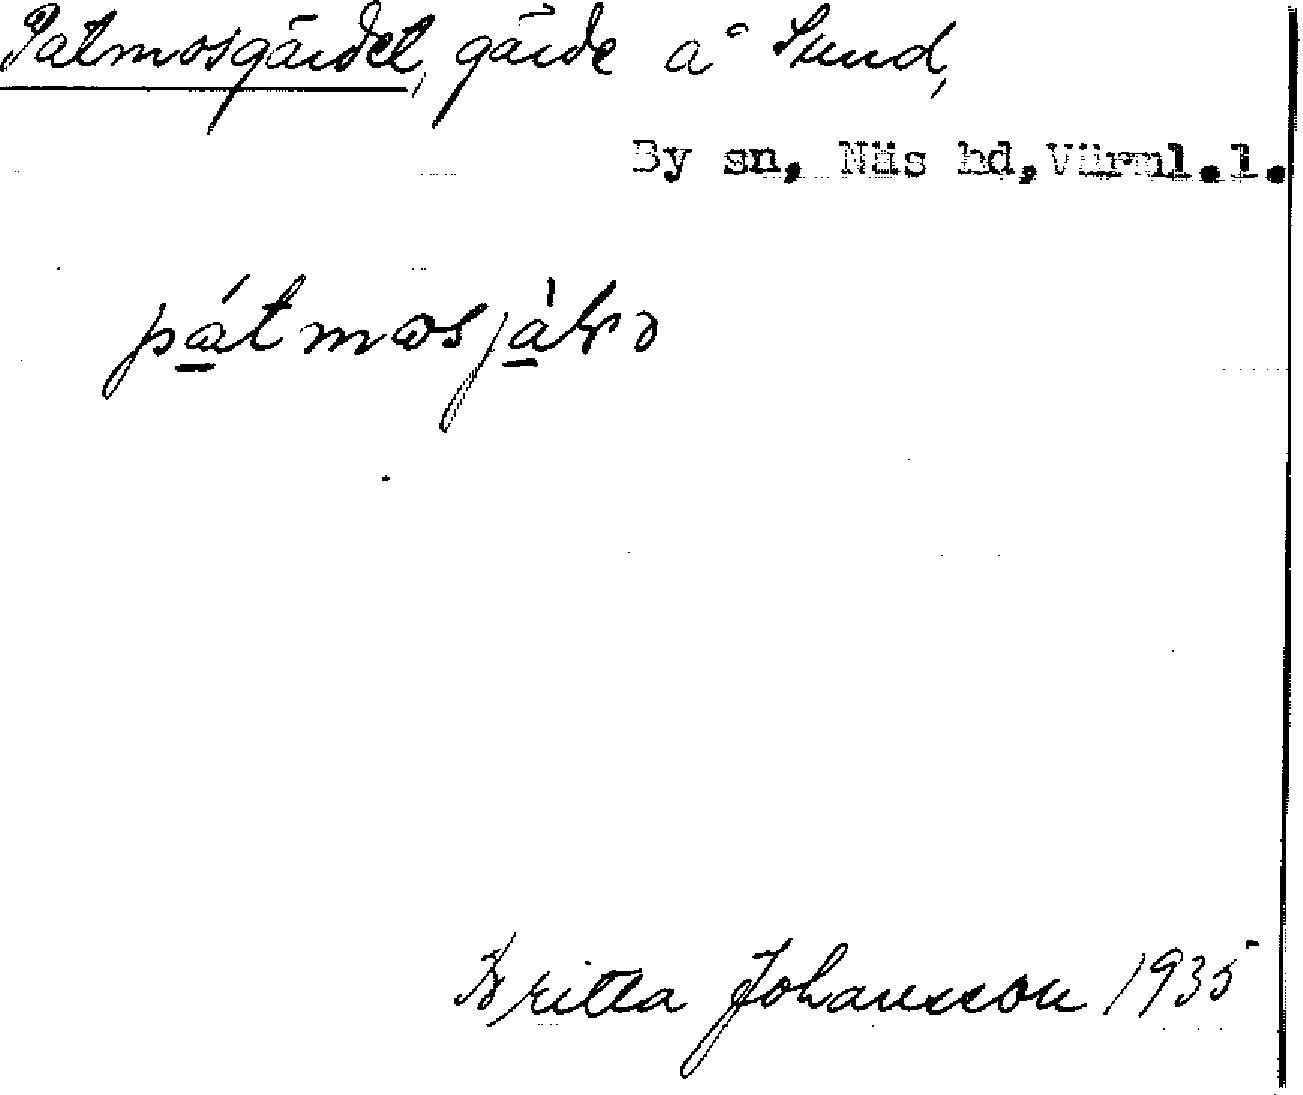 Patmosgärdet, gärde å Sund,
By sn, Näs hd, Värml.l.
Britta Johansson 1935